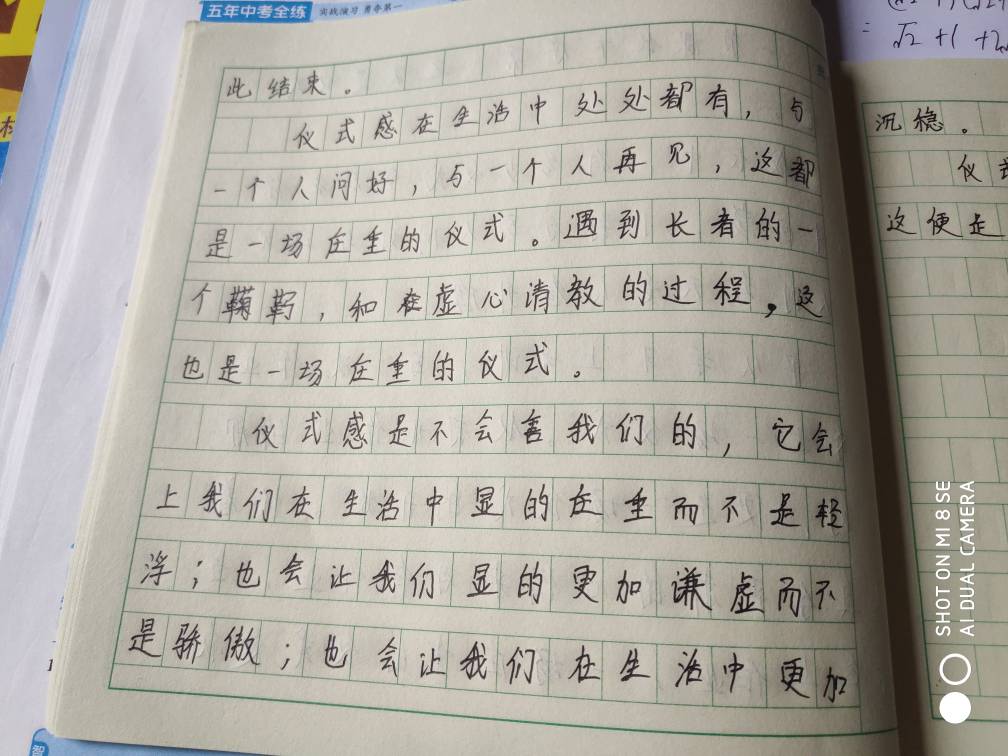 五年中考全练 实战演习 勇夺第一
此结束。
仪式感在生活中处处都有，与
一个人问好，与一个人再见，这都
是一场庄重的仪式。遇到长者的一
个鞠躬，和在虚心请教的过程，这
也是一场庄重的仪式。
仪式感是不会害我们的，它会
上我们在生活中显的庄重而不是轻
浮；也会让我们显的更加谦虚而不
是骄傲；也会让我们在生活中更加
√2 +1 +2
沉稳。
仪式
这便是
SHOT ON MI 8 SE
AI DUAL CAMERA